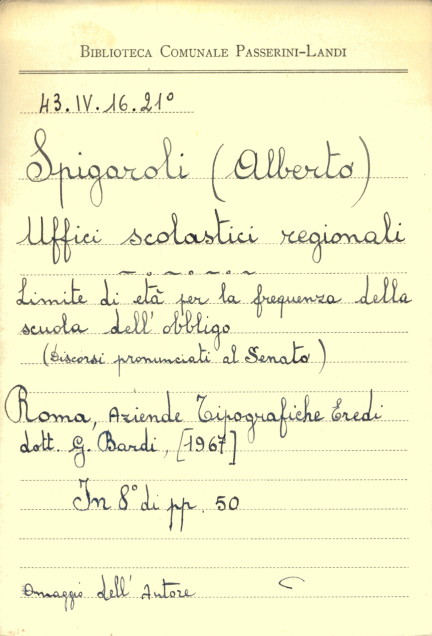 Biblioteca Comunale Passerini-Landi
43.IV.16.21°
Spigaroli (Alberto)
Uffici scolastici regionali
Limite di età per la frequenza della
scuola dell'obbligo
(Discorsi pronunciati al Senato)
Roma, Aziende Tipografiche Eredi
dott. G. Bardi, [1967]
In 8° di pp. 50
Omaggio dell'Autore